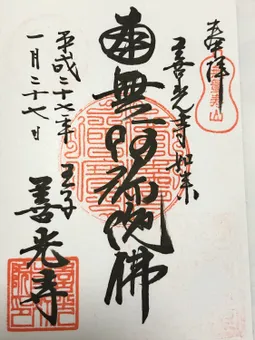 奉拝
善光寺如来
南無阿弥陀佛
平成二十七年
一月二十七日
王子
善光寺